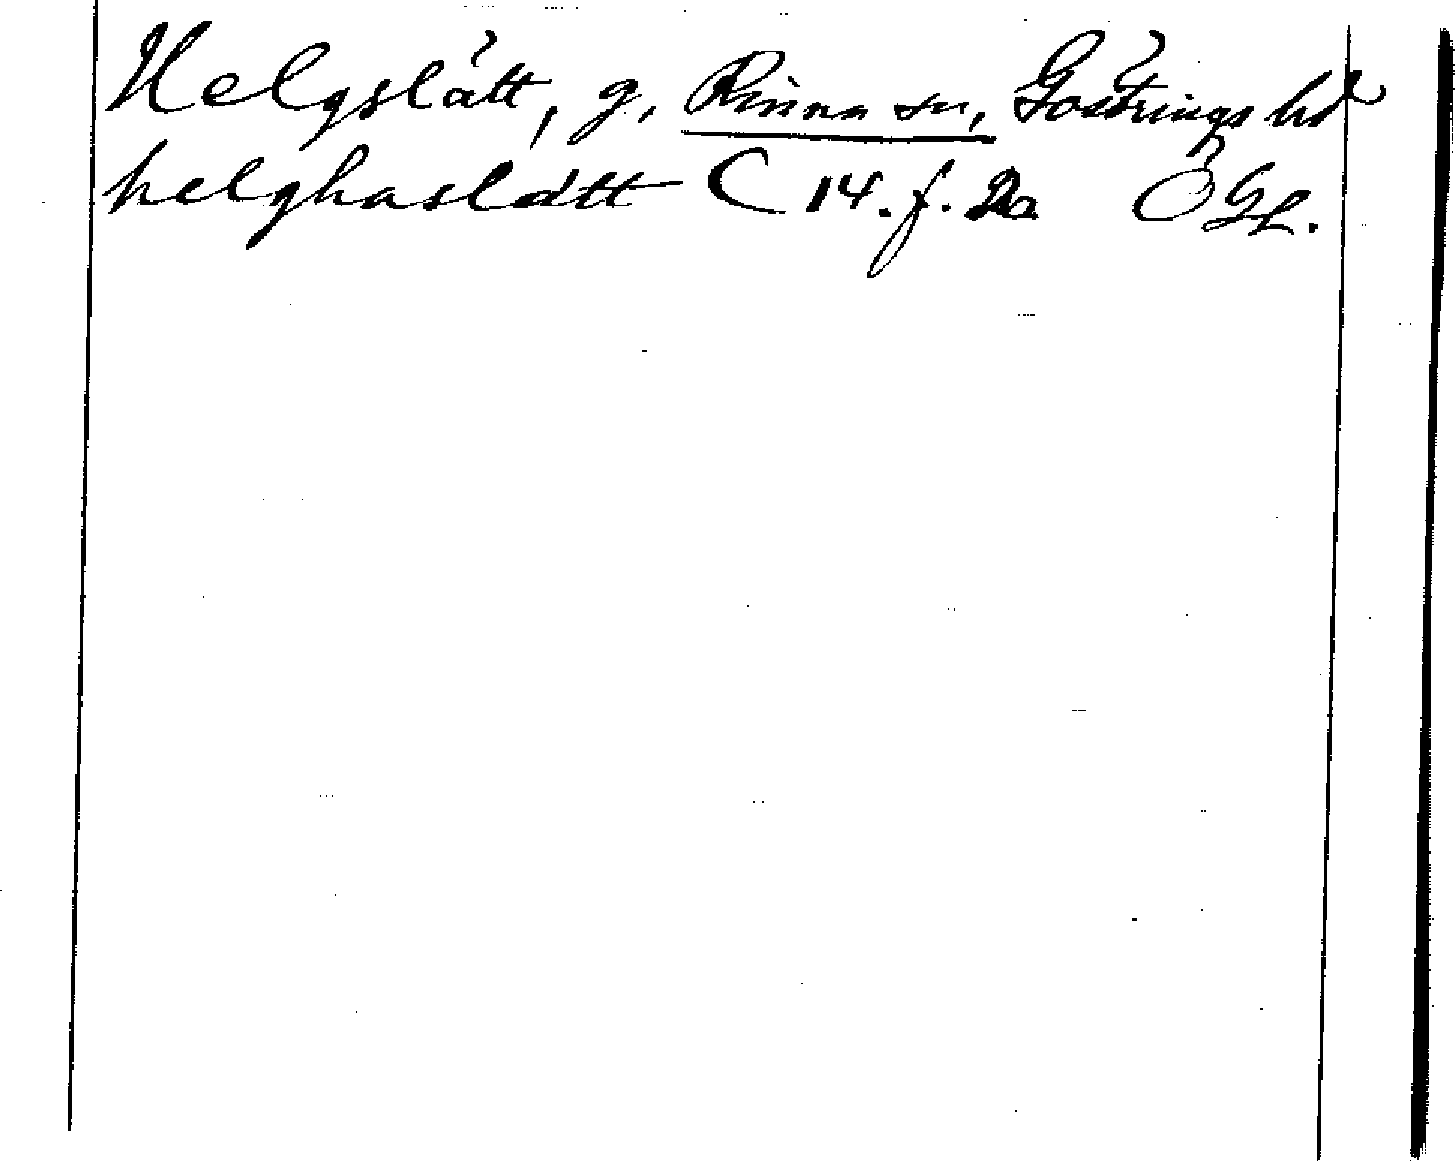 Helgslätt, g, Rinna sn, Göstrings hd
helghaslätt C 14. f. 2a ÖGL.